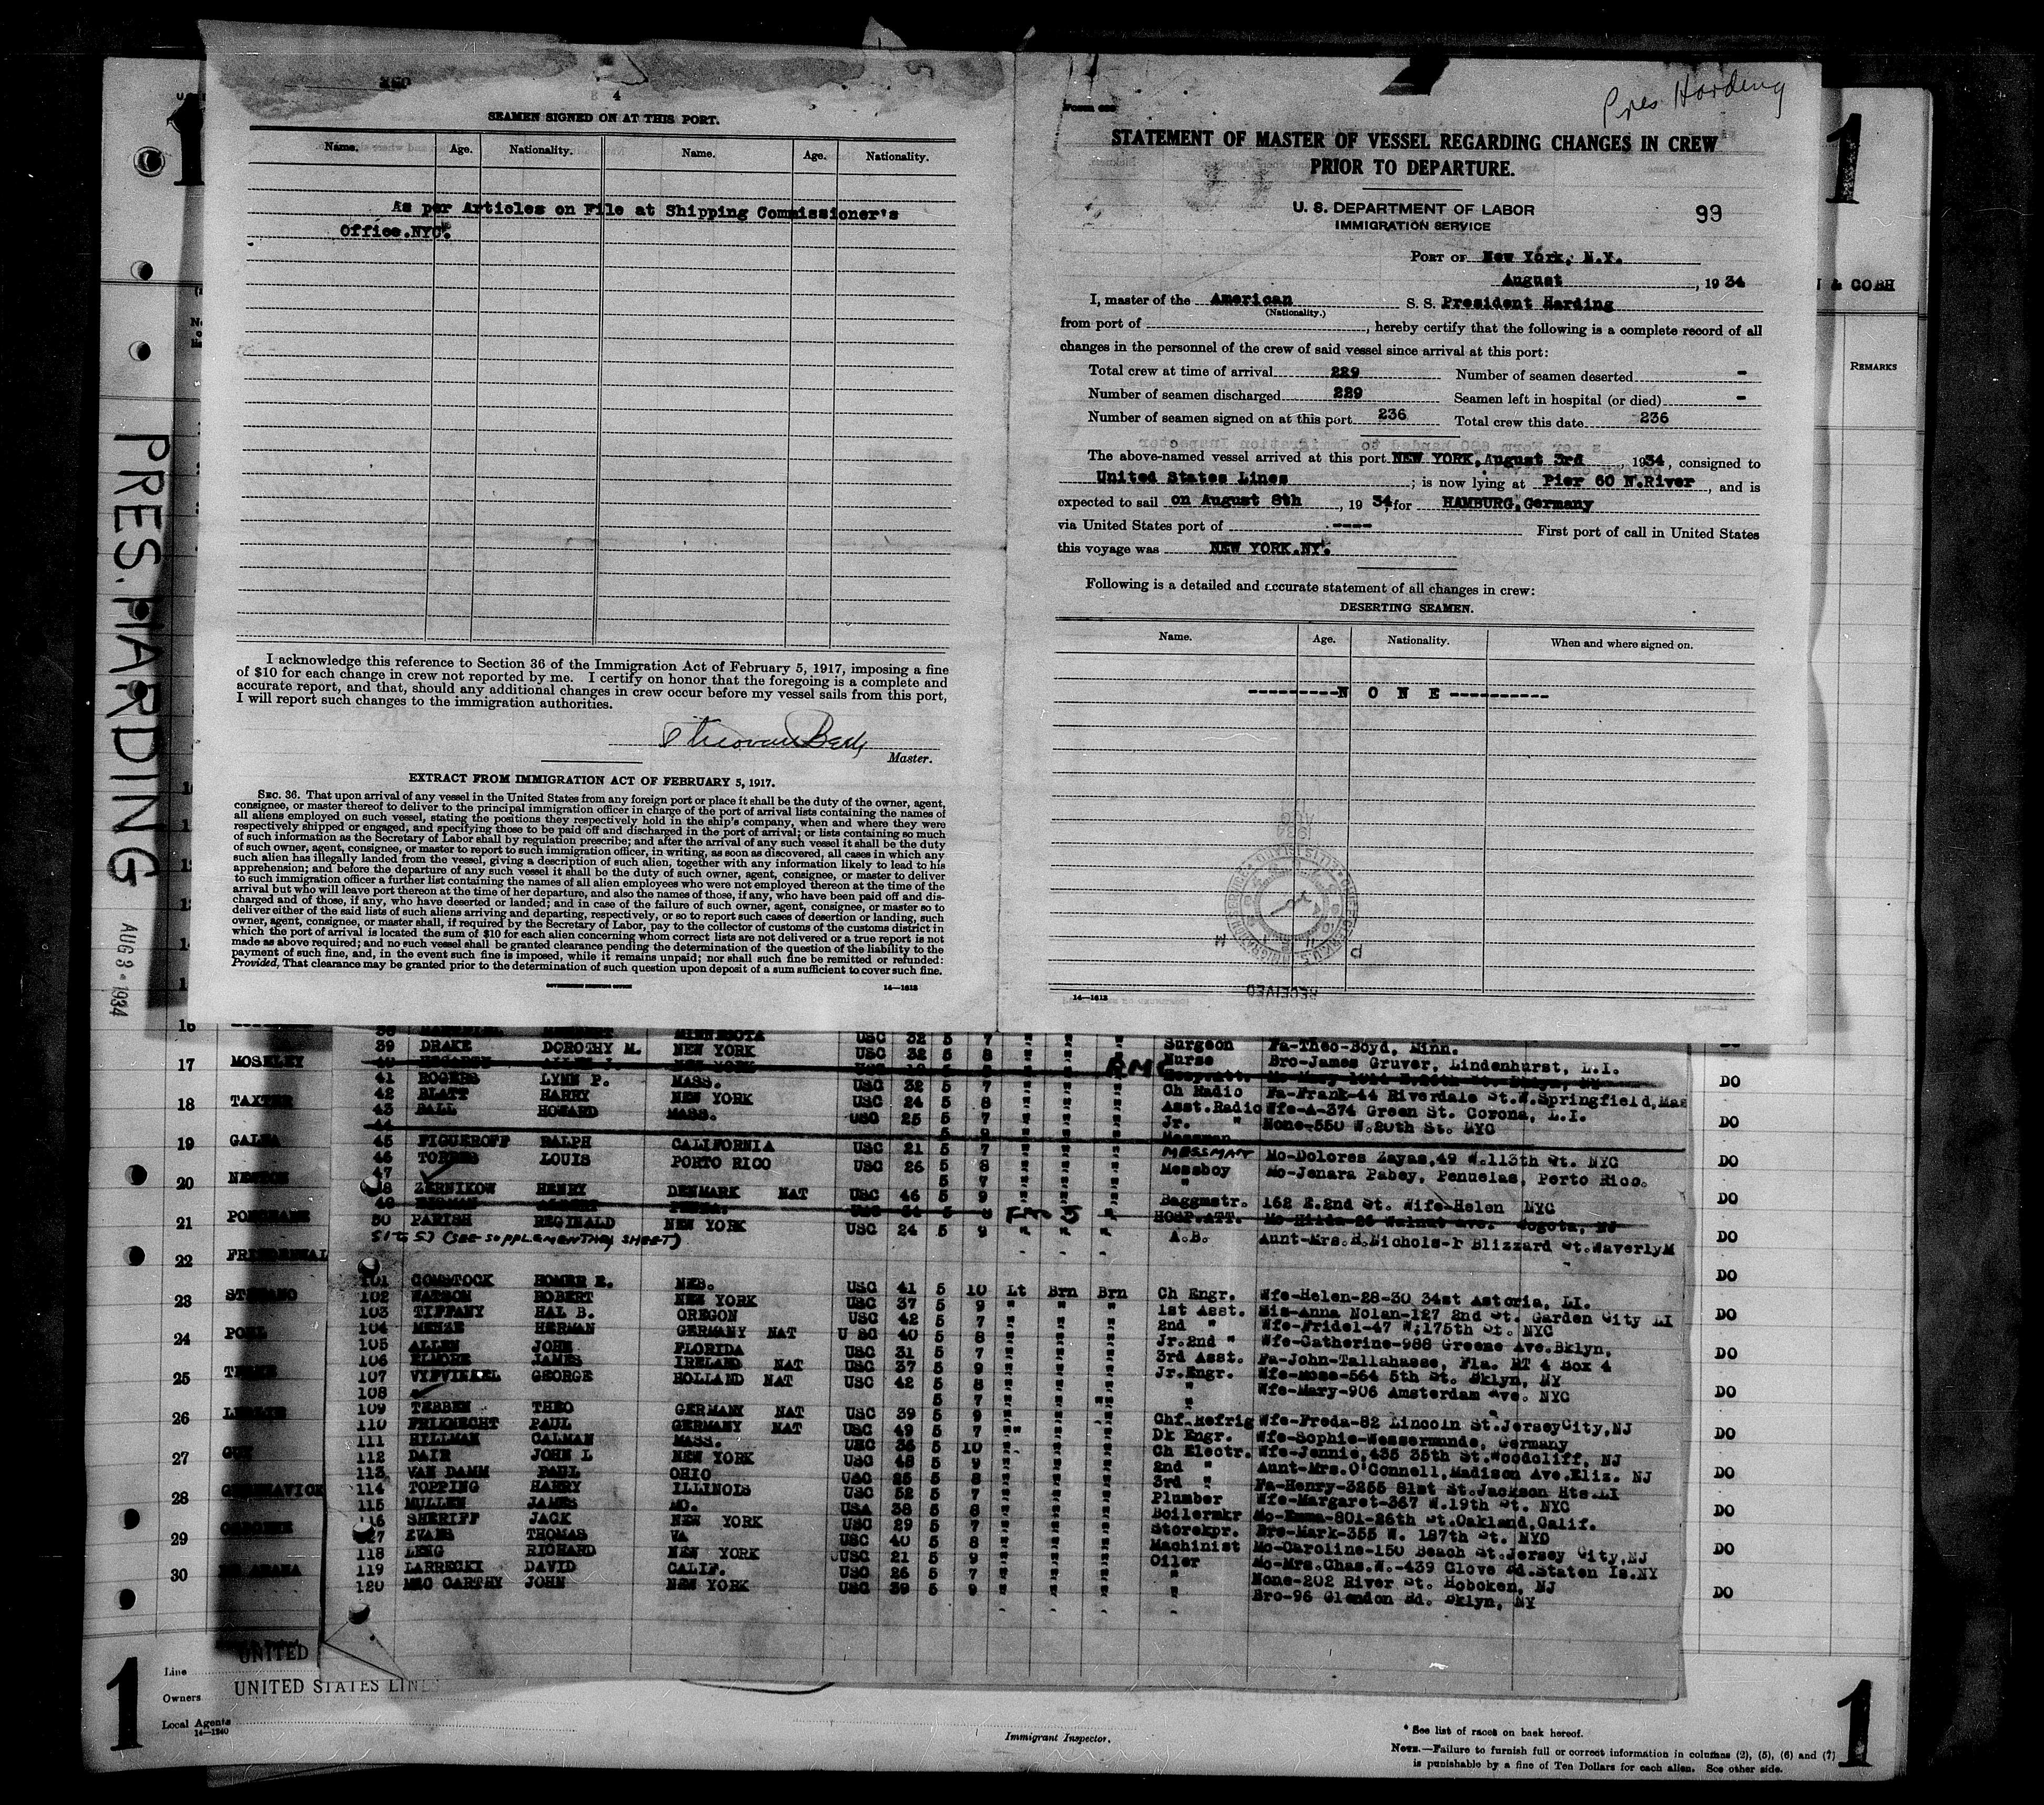 4
SEAMEN SIGNED ON AT THIS PORT.
Name. Age. Nationality. Name. Age. Nationality.
As per Articles on File at Shipping Commissioner's
Office.NYC.
I acknowledge this reference to Section 36 of the Immigration Act of February 5, 1917, imposing a fine
of $10 for each change in crew not reported by me. I certify on honor that the foregoing is a complete and
accurate report, and that, should any additional changes in crew occur before my vessel sails from this port,
I will report such changes to the immigration authorities.
Master.
EXTRACT FROM IMMIGRATION ACT OF FEBRUARY 5, 1917.
SEC. 36. That upon arrival of any vessel in the United States from any foreign port or place it shall be the duty of the owner, agent,
consignee, or master thereof to deliver to the principal immigration officer in charge of the port of arrival lists containing the names of
all aliens employed on such vessel, stating the positions they respectively hold in the ship's company, when and where they were
respectively shipped or engaged, and specifying those to be paid off and discharged in the port of arrival; or lists containing so much
of such information as the Secretary of Labor shall by regulation prescribe; and after the arrival of any such vessel it shall be the duty
of such owner, agent, consignee, or master to report to such immigration officer, in writing, as soon as discovered, all cases in which any
such alien has illegally landed from the vessel, giving a description of such alien, together with any information likely to lead to his
apprehension; and before the departure of any such vessel it shall be the duty of such owner, agent, consignee, or master to deliver
to such immigration officer a further list containing the names of all alien employees who were not employed thereon at the time of the
arrival but who will leave port thereon at the time of her departure, and also the names of those, if any, who have been paid off and dis-
charged and of those, if any, who have deserted or landed; and in case of the failure of such owner, agent, consignee, or master so to
deliver either of the said lists of such aliens arriving and departing, respectively, or so to report such cases of desertion or landing, such
owner, agent, consignee, or master shall, if required by the Secretary of Labor, pay to the collector of customs of the customs district in
which the port of arrival is located the sum of $10 for each alien concerning whom correct lists are not delivered or a true report is not
made as above required; and no such vessel shall be granted clearance pending the determination of the question of the liability to the
payment of such fine, and, in the event such fine is imposed, while it remains unpaid; nor shall such fine be remitted or refunded:
Provided, That clearance may be granted prior to the determination of such question upon deposit of a sum sufficient to cover such fine.
GOVERNMENT PRINTING OFFICE 14—1613
Pres Harding
STATEMENT OF MASTER OF VESSEL REGARDING CHANGES IN CREW
PRIOR TO DEPARTURE.
U. S. DEPARTMENT OF LABOR
IMMIGRATION SERVICE
99
PORT OF New York, N.Y.
August, 1934
I, master of the American S. S. President Harding
(Nationality.)
from port of , hereby certify that the following is a complete record of all
changes in the personnel of the crew of said vessel since arrival at this port:
Total crew at time of arrival 229 Number of seamen deserted -
Number of seamen discharged 229 Seamen left in hospital (or died) -
Number of seamen signed on at this port 236 Total crew this date 236
The above-named vessel arrived at this port NEW YORK, August 3rd, 1934, consigned to
United States Lines ; is now lying at Pier 60 N.River, and is
expected to sail on August 8th, 1934, for HAMBURG, Germany
via United States port of ---- First port of call in United States
this voyage was NEW YORK.NY.
Following is a detailed and accurate statement of all changes in crew:
DESERTING SEAMEN.
Name. Age. Nationality. When and where signed on.
----------N O N E----------
14—1613
RECEIVED
1
1
& COBH
REMARKS
PRES. HARDING
AUG 3 - 1934
39 DRAKE DOROTHY M. NEW YORK USC 32 5 8 " " " Nurse Bro-James Gruver, Lindenhurst, L.I.
41 ROGERS LYNN P. MASS. USC 32 5 7 " " " Ch Radio Fa-Frank-44 Riverdale St.W.Springfield,Mas
42 BLATT HARRY NEW YORK USC 24 5 8 " " " Asst.Radio Wfe-A-374 Green St. Corona, L.I.
43 BALL HOWARD MASS. USC 25 5 7 " " " Jr. " None-550 W.20th St. NYC
44
45 FIGUEROFF RALPH CALIFORNIA USC 21 5 7 " " " MESSMAN Mo-Dolores Zayas,49 W.113th St. NYC
46 TORRES LOUIS PORTO RICO USC 26 5 8 " " " Messboy Mo-Jenara Pabey, Penuelas, Porto Rico.
47
48 ZERNIKOW HENRY DENMARK NAT USC 46 5 9 " " " Baggmstr. 162 E.2nd St. Wife-Helen NYC
50 PARISH REGINALD NEW YORK USC 24 5 9 " " " A.B. Aunt-Mrs.R.Nichols-1 Blizzard St.WaverlyM
51 to 57 (SEE SUPPLEMENTARY SHEET)
101 COMSTOCK HOMER E. NEB. USC 41 5 10 Lt Brn Brn Ch Engr. Wfe-Helen-28-30 34st Astoria, LI.
102 WATSON ROBERT NEW YORK USC 37 5 9 " " " 1st Asst. Sis-Anna Nolan-127 2nd St. Garden City LI
103 TIFFANY HAL B. OREGON USC 42 5 7 " " " 2nd " Wfe-Fridel-47 W.175th St. NYC
104 MENZE HERMAN GERMANY NAT USC 40 5 8 " " " Jr.2nd " Wfe-Catherine-988 Greene Ave.Bklyn,
105 ALLEN JOHN FLORIDA USC 31 5 7 " " " 3rd Asst. Fa-John-Tallahasse, Fla. RT 4 Box 4
106 ELMORE JAMES IRELAND NAT USC 37 5 9 " " " Jr.Engr. Wfe-Rose-564 5th St. Bklyn, NY
107 VYFVINKEL GEORGE HOLLAND NAT USC 42 5 8 " " " " Wfe-Mary-906 Amsterdam Ave. NYC
108
109 TEBBEN THEO GERMANY NAT USC 39 5 9 " " " Chf.Refrig Wfe-Freda-82 Lincoln St.JerseyCity,NJ
110 FRIKNECHT PAUL GERMANY NAT USC 49 5 7 " " " Dk Engr. Wfe-Sophie-Wesermunde, Germany
111 HILLMAN CALMAN MASS. USC 36 5 10 " " " Ch Electr. Wfe-Jennie,435 35th St.Woodcliff, NJ
112 DAIR JOHN L NEW YORK USC 48 5 9 " " " 2nd " Aunt-Mrs.O'Connell,Madison Ave.Eliz. NJ
113 VAN DAMM PAUL OHIO USC 25 5 8 " " " 3rd " Fa-Henry-3255 81st St.Jackson Hts.LI
114 TOPPING HARRY ILLINOIS USC 52 5 7 " " " Plumber Wfe-Margaret-367 W.19th St. NYC
115 MULLEN JAMES MO. USA 38 5 8 " " " Boilermkr Mo-Emma-801-26th St.Oakland,Calif.
116 SHERIFF JACK NEW YORK USC 29 5 7 " " " Storekpr. Bro-Mark-355 W. 187th St. NYC
117 EVANS THOMAS VA USC 40 5 8 " " " Machinist Mo-Caroline-150 Beach St.Jersey City,NJ
118 LENG RICHARD NEW YORK USC 21 5 9 " " " Oiler Mo-Mrs.Chas.W.-439 Clove Rd.Staten Is.NY
119 LARRECKI DAVID CALIF. USC 26 5 7 " " " " None-202 River St. Hoboken, NJ
120 MAC CARTHY JOHN NEW YORK USC 39 5 9 " " " " Bro-96 Glendon Rd. Bklyn, NY
16
17 MOSELEY DO
18 TAXTER DO
19 GALEA DO
20 NEWTON DO
21 DO
22 DO
23 DO
24 POHL DO
25 DO
26 LESLIE DO
27 GUY DO
28 DO
29 DO
30 DO
UNITED
Line
Owners UNITED STATES LINES
Local Agents
14—1240
Immigrant Inspector.
* See list of races on back hereof.
NOTE.—Failure to furnish full or correct information in columns (2), (5), (6) and (7)
is punishable by a fine of Ten Dollars for each alien. See other side.
1
1